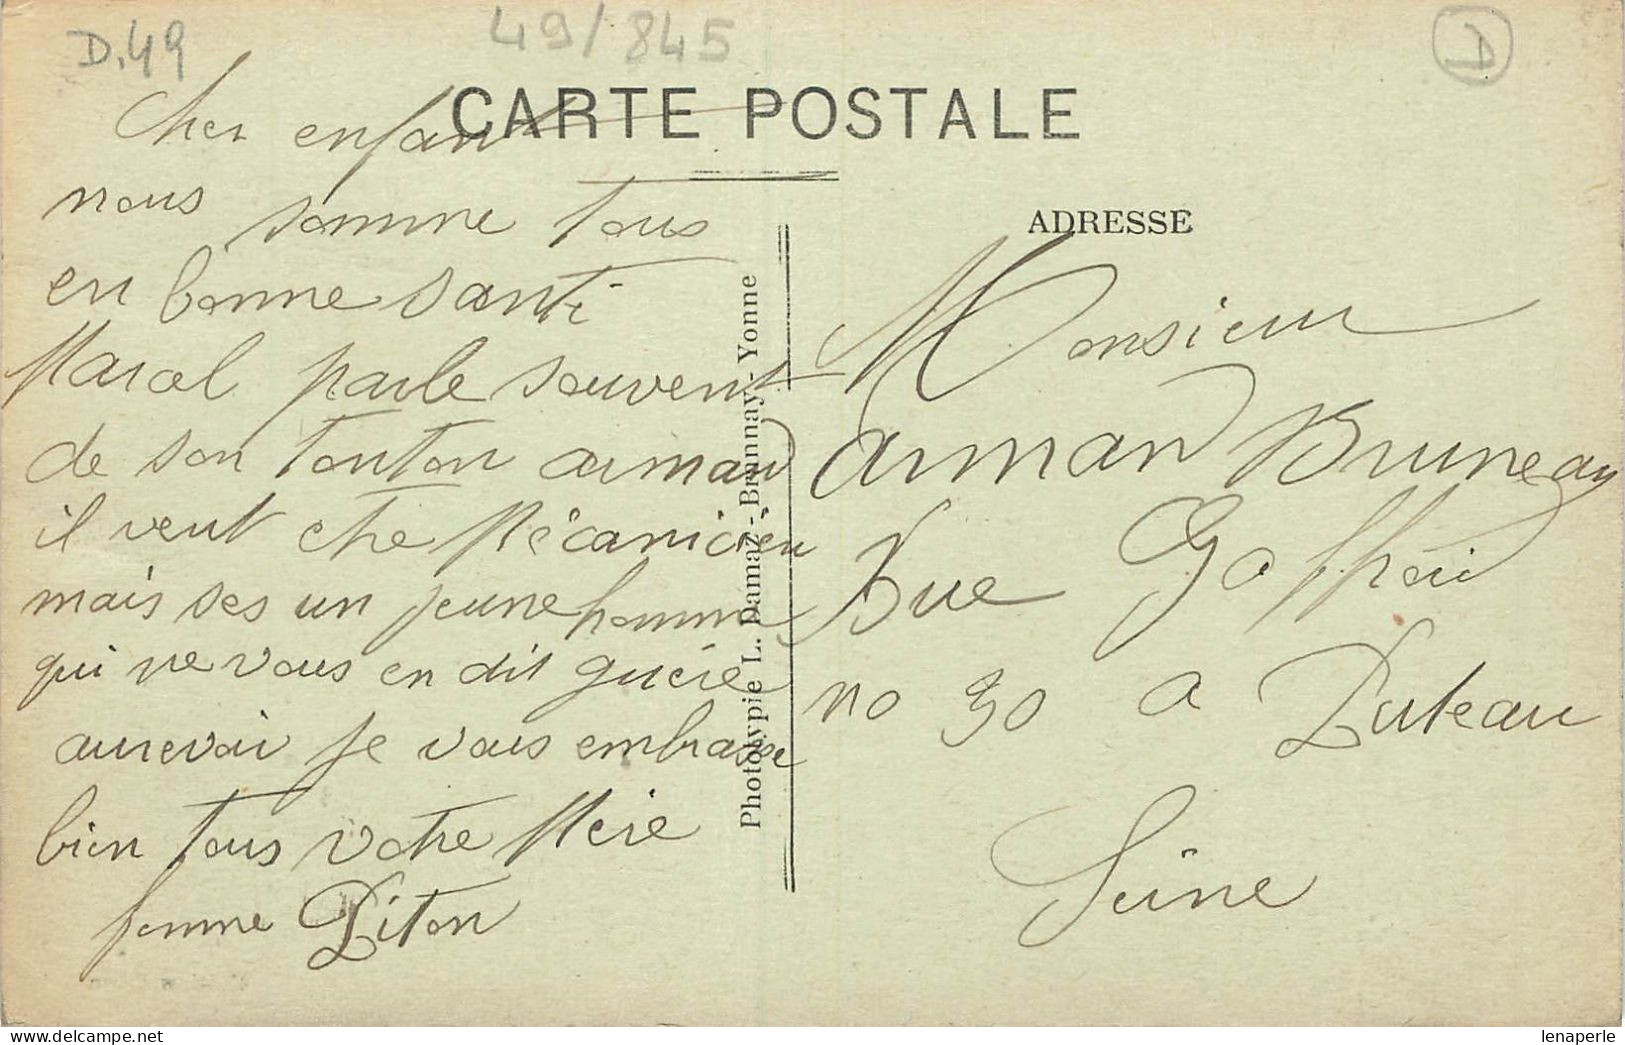 D.49
49/845
D
CARTE POSTALE
cher enfant
nous somme tous
en bonne santi
Marcel parle souvent
de son tonton armand
il veut etre Mécanicien
mais ses un jeune homme
qui ne vous en dit guerre
aurevoir je vous embrasse
bien tous votre Mère
femme Piton
Phototypie L. Damaz - Brannay - Yonne
ADRESSE
Monsieur
arman Bruneau
Rue
no 30 a Puteau
Seine
lenaperle